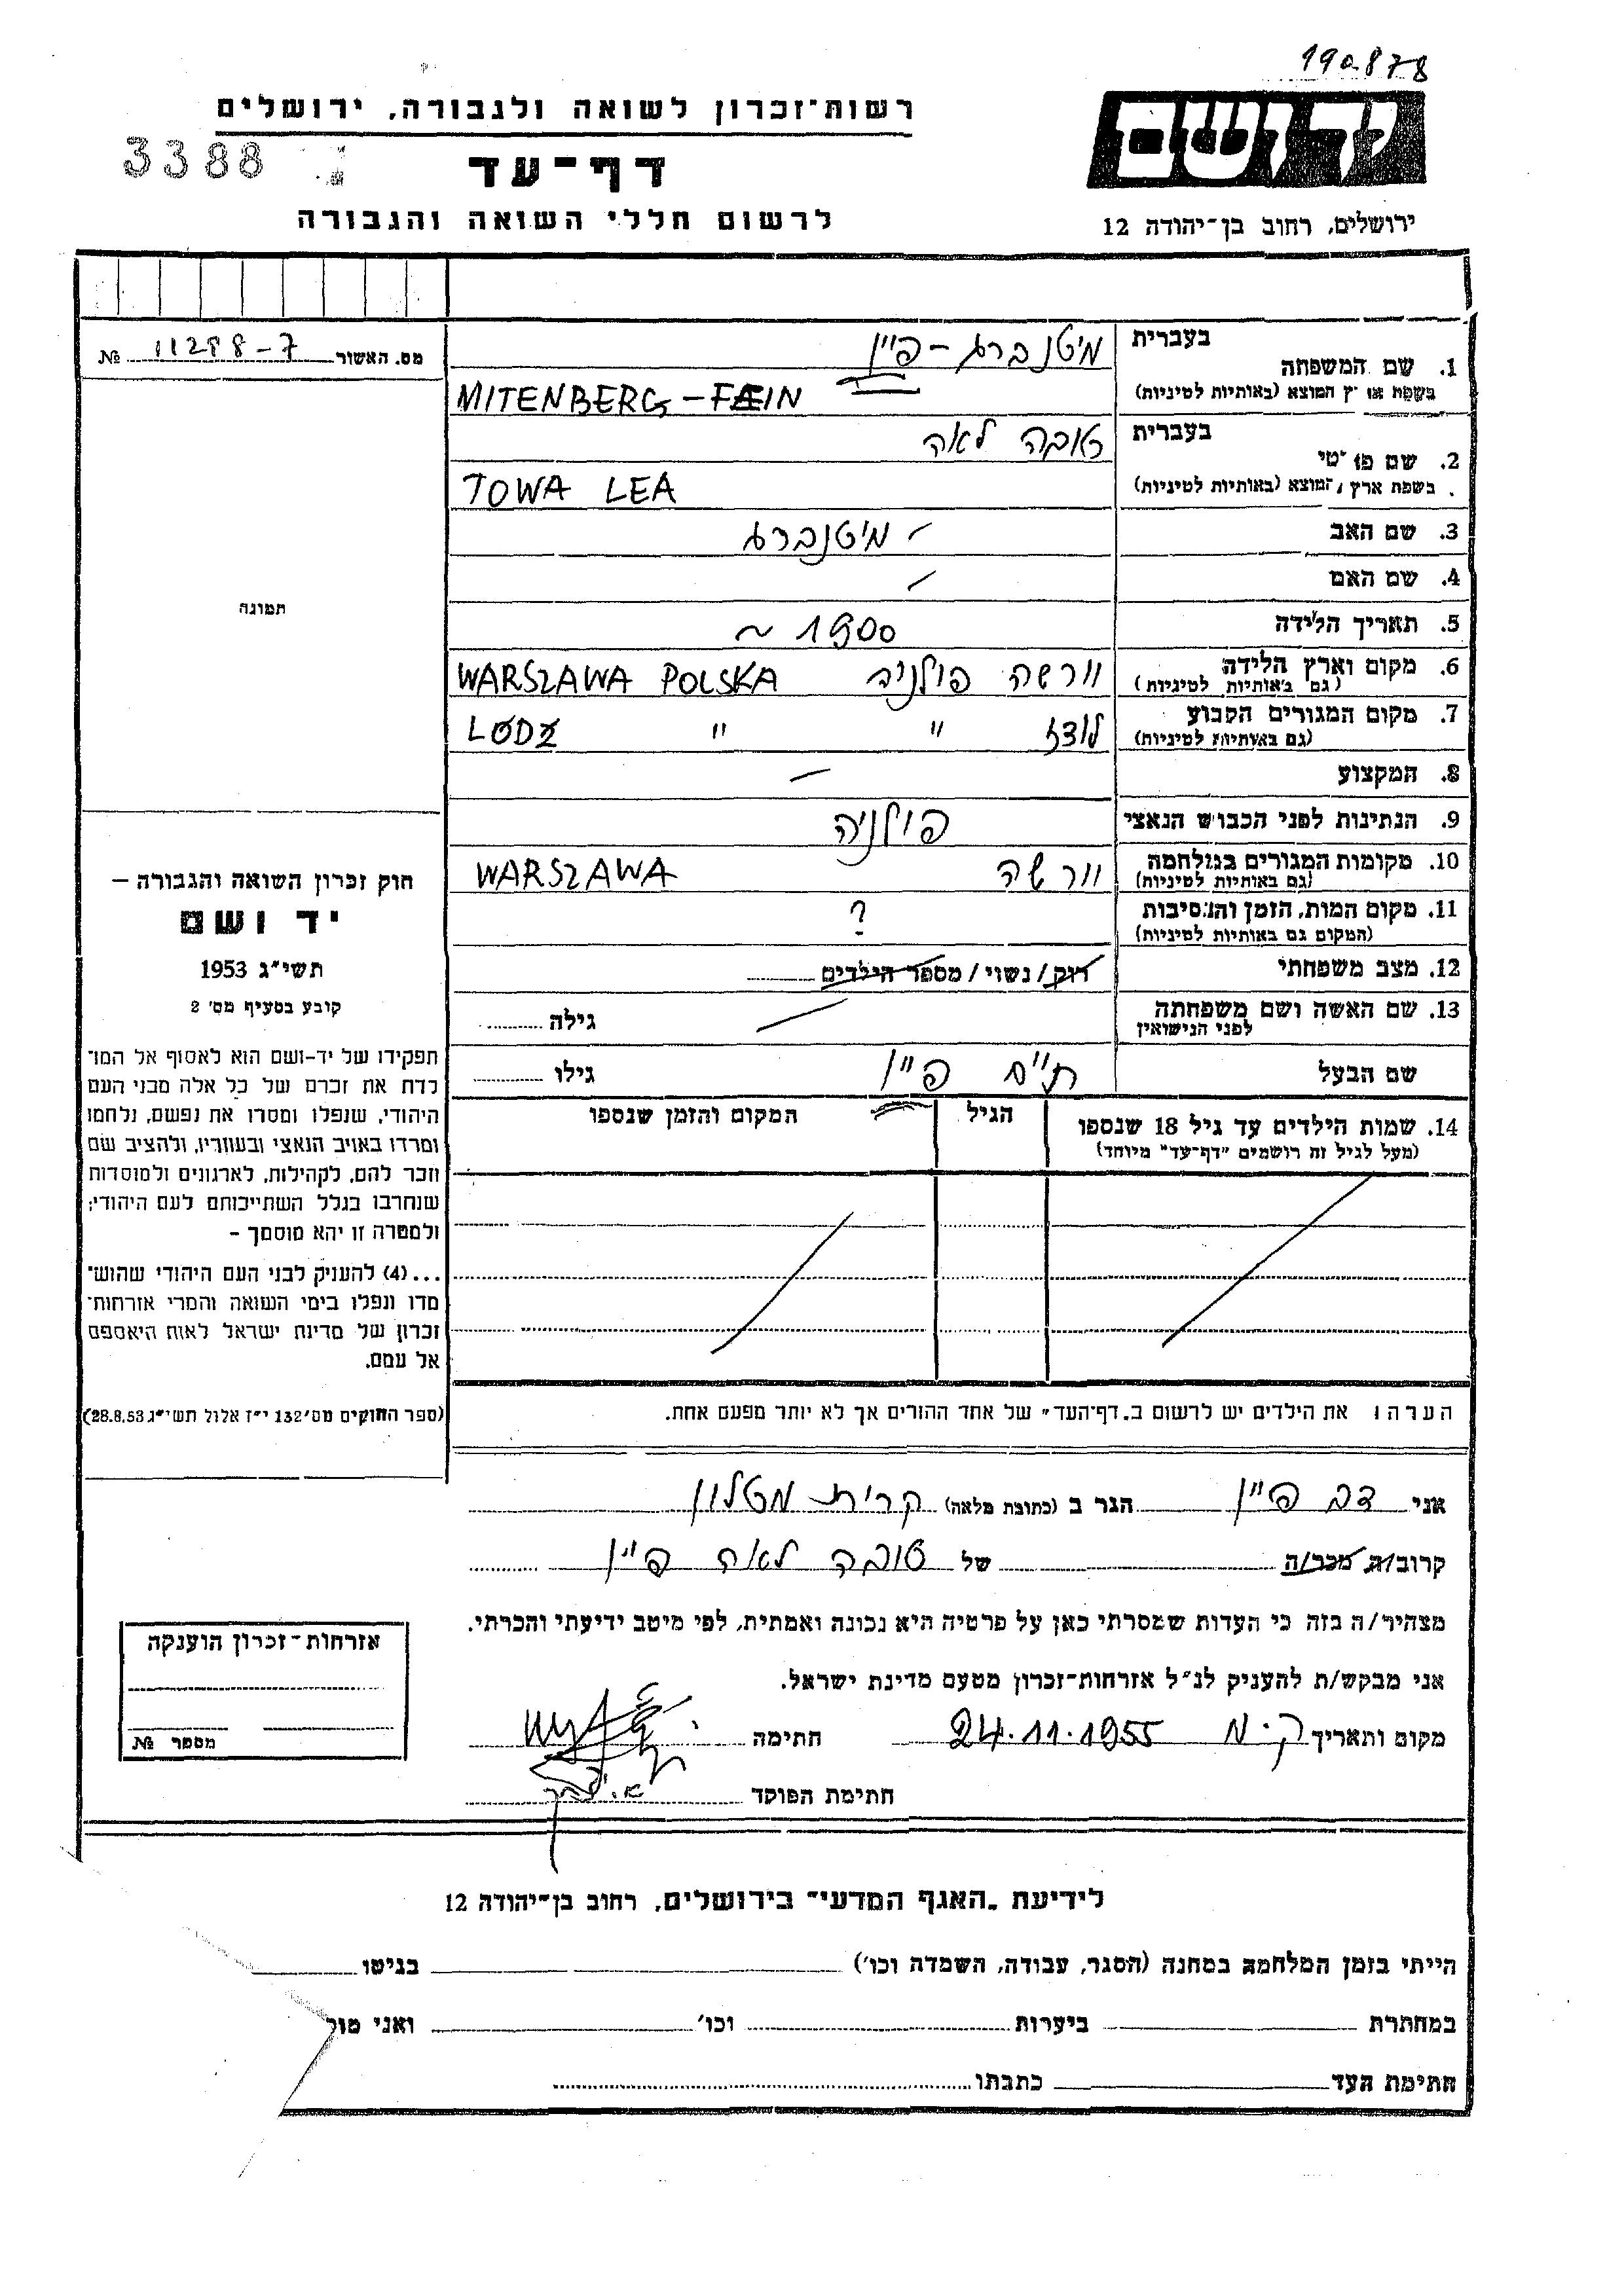 190878
רשות־זכרון לשואה ולגבורה, ירושלים
3388
דף־עד
לרשום חללי השואה והגבורה
יד ושם
ירושלים, רחוב בן־יהודה 12
מס. האשור 11288-7 №
בעברית
1. שם המשפחה
מיטנברג - פיין
(באותיות לטיניות)
MITENBERG - FEIN
בעברית
2. שם
טובה לאה
(באותיות לטיניות)
TOWA LEA
3. שם האב
– מיטנברג
4. שם האם
–
5. תאריך הלידה
1900 ~
6. מקום וארץ הלידה
(גם באותיות לטיניות)
וורשה פולניה WARSZAWA POLSKA
7. מקום המגורים הקבוע
(גם באותיות לטיניות)
לודז " " LODZ
8. המקצוע
–
9. הנתינות לפני הכבוש הנאצי
פולניה
10. מקומות המגורים במלחמה
(גם באותיות לטיניות)
וורשה WARSZAWA
11. מקום המות, הזמן והנסיבות
(המקום גם באותיות לטיניות)
?
12. מצב משפחתי
רוק/נשוי/מספר הילדים
13. שם האשה ושם משפחתה
לפני הנישואין
גילה
שם הבעל
פיין
גילו
14. שמות הילדים עד גיל 18 שנספו
(מעל לגיל זה רושמים "דף־עד" מיוחד)
הגיל
המקום והזמן שנספו
הערה: את הילדים יש לרשום ב„דף־העד" של אחד ההורים אך לא יותר מפעם אחת.
תמונה
חוק זכרון השואה והגבורה –
יד ושם
תשי"ג 1953
קובע בסעיף מס' 2
תפקידו של יד-ושם הוא לאסוף אל המו־
לדת את זכרם של כל אלה מבני העם
היהודי, שנפלו ומסרו את נפשם, נלחמו
ומרדו באויב הנאצי ובעוזריו, ולהציב שם
וזכר להם, לקהילות, לארגונים ולמוסדות
שנחרבו בגלל השתייכותם לעם היהודי;
ולמטרה זו יהא מוסמך –
...(4) להעניק לבני העם היהודי שהוש־
מדו ונפלו בימי השואה והמרי אזרחות־
זכרון של מדינת ישראל לאות היאספם
אל עמם.
(ספר החוקים מס' 132 י"ז אלול תשי"ג 28.8.53)
אני דב פיין הגר ב (כתובת מלאה) קרית מטלון
קרוב/ה מכר/ה של טובה לאה פיין
מצהיר/ה בזה כי העדות שמסרתי כאן על פרטיה היא נכונה ואמתית, לפי מיטב ידיעתי והכרתי.
אני מבקש/ת להעניק לנ"ל אזרחות־זכרון מטעם מדינת ישראל.
מקום ותאריך ק.מ 24.11.1955 חתימה
חתימת הפוקד
אזרחות־זכרון הוענקה
מספר №
לידיעת „האגף המדעי" בירושלים, רחוב בן־יהודה 12
הייתי בזמן המלחמה במחנה (הסגר, עבודה, השמדה וכו') בגיטו
במחתרת ביערות וכו' ואני
חתימת העד כתבתו